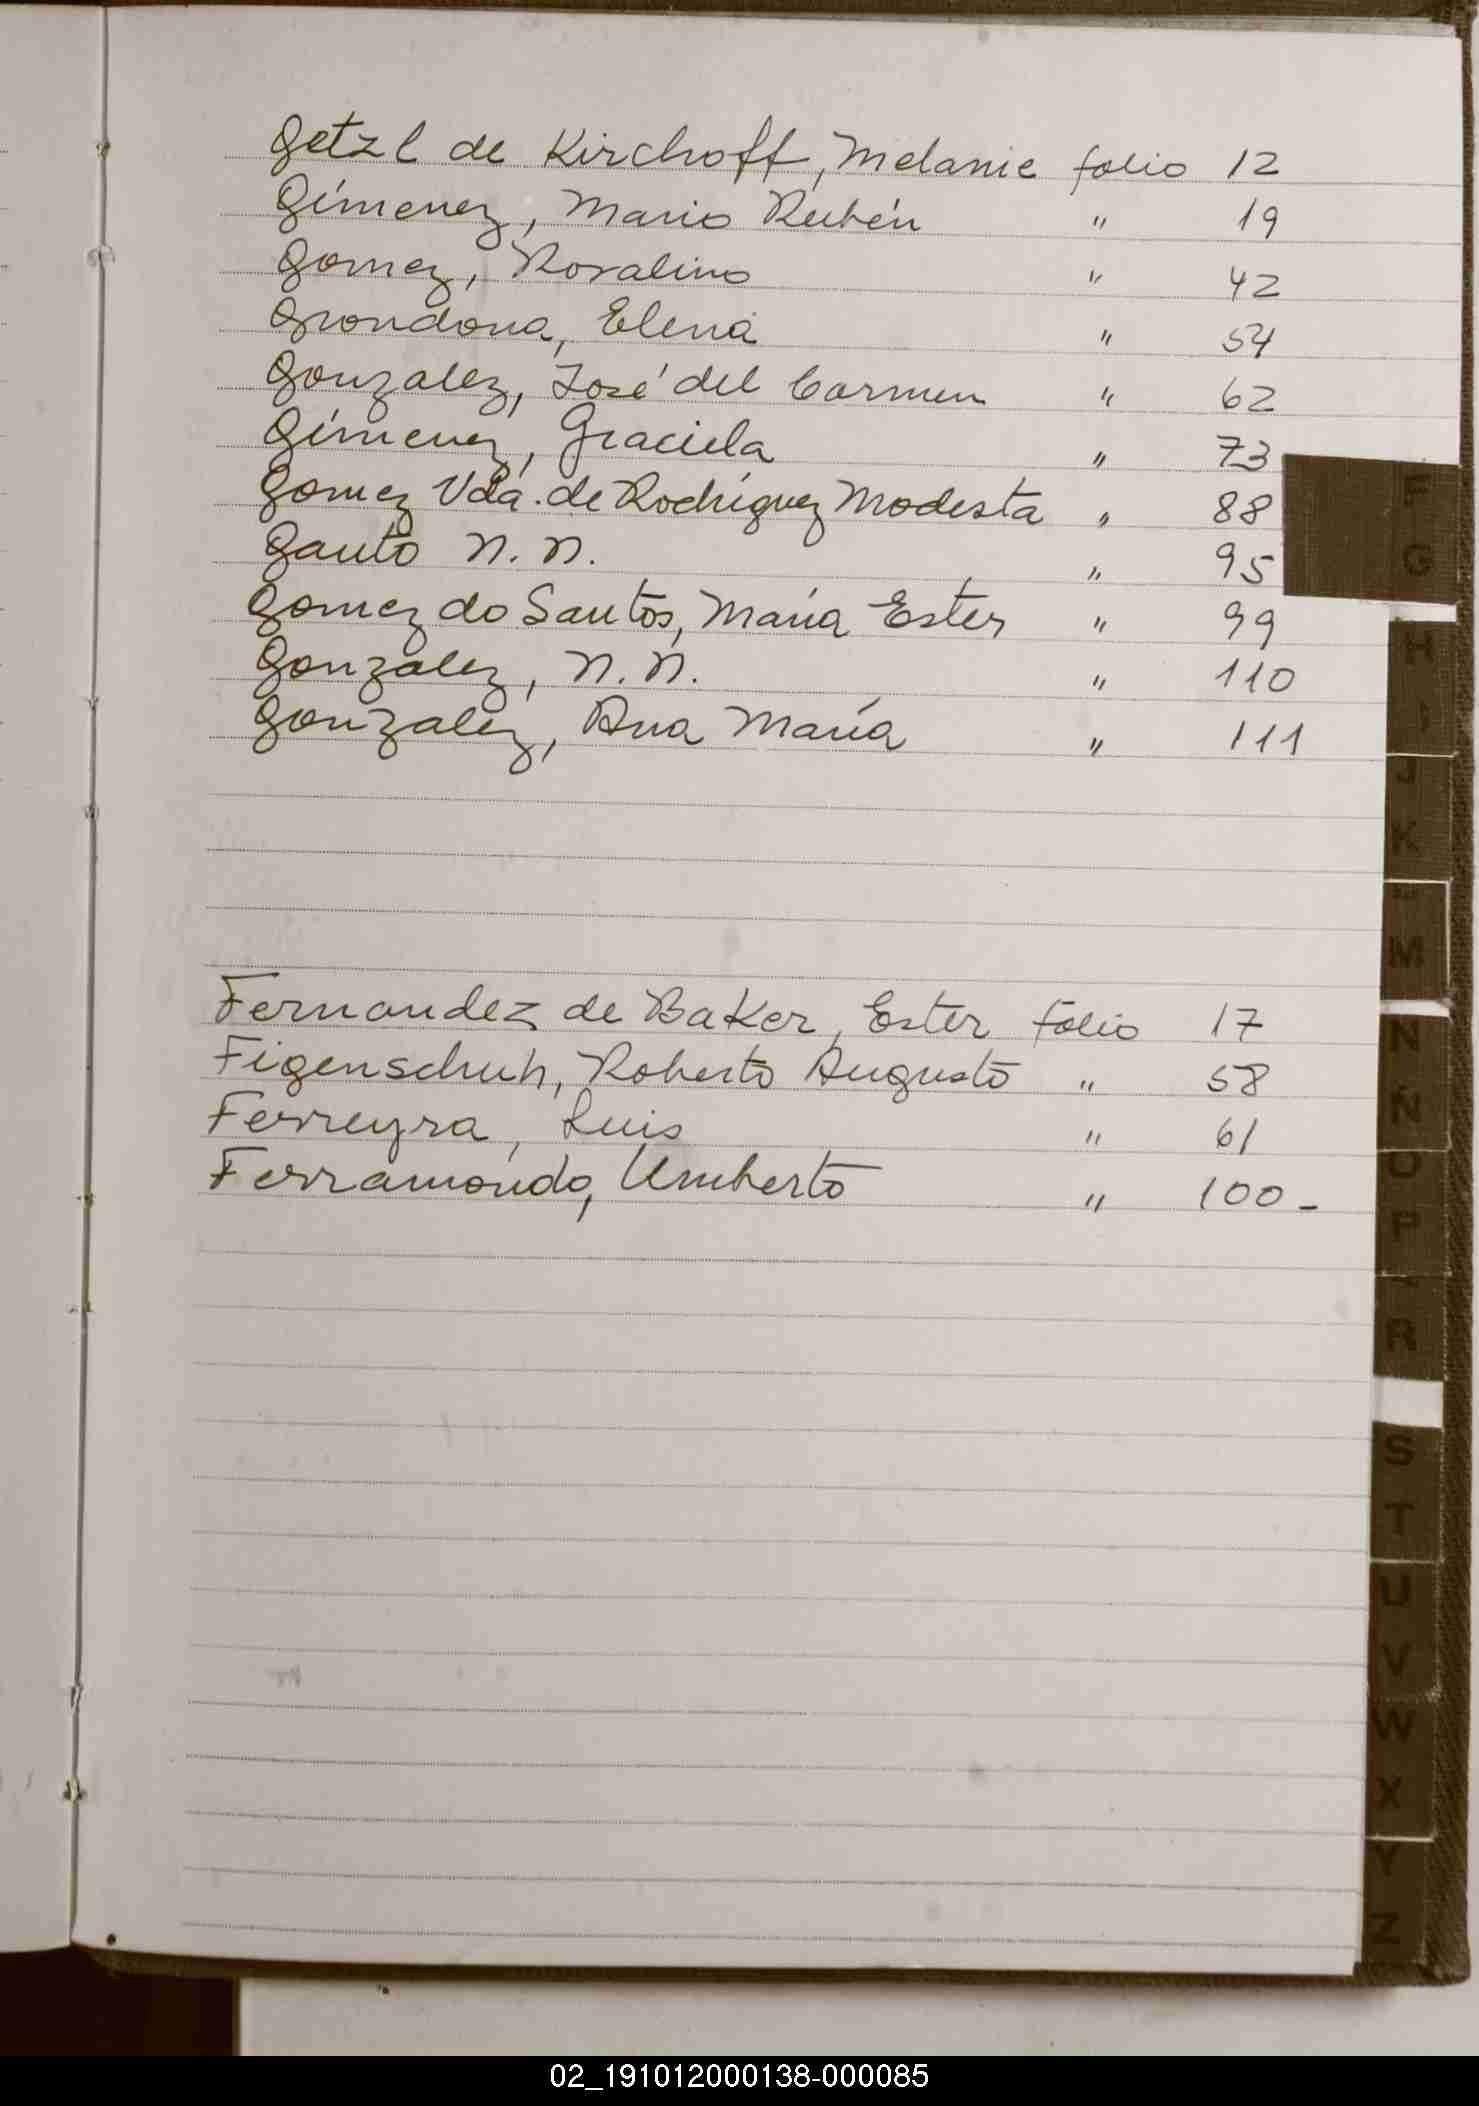 Getzl de Kirchoff, Melanie folio 12
Gímenez, Mario Rubén " 19
Gomez, Rosalino " 42
Grondona, Elena " 54
Gonzalez, José del Carmen " 62
Gímenez, Graciela " 73
Gomez Vda. de Rodríguez Modesta " 88
Gauto N.N. " 95
Gomez do Santos, María Ester " 99
Gonzalez, N.N. " 110
Gonzalez, Ana María " 111
Fernandez de Baker, Ester folio 17
Figenschuh, Roberto Augusto " 58
Ferreyra, Luis " 61
Ferramondo, Umberto " 100-
F
G
H
I
J
K
M
N
Ñ
O
P
R
S
T
U
V
W
X
Y
Z
02_191012000138-000085